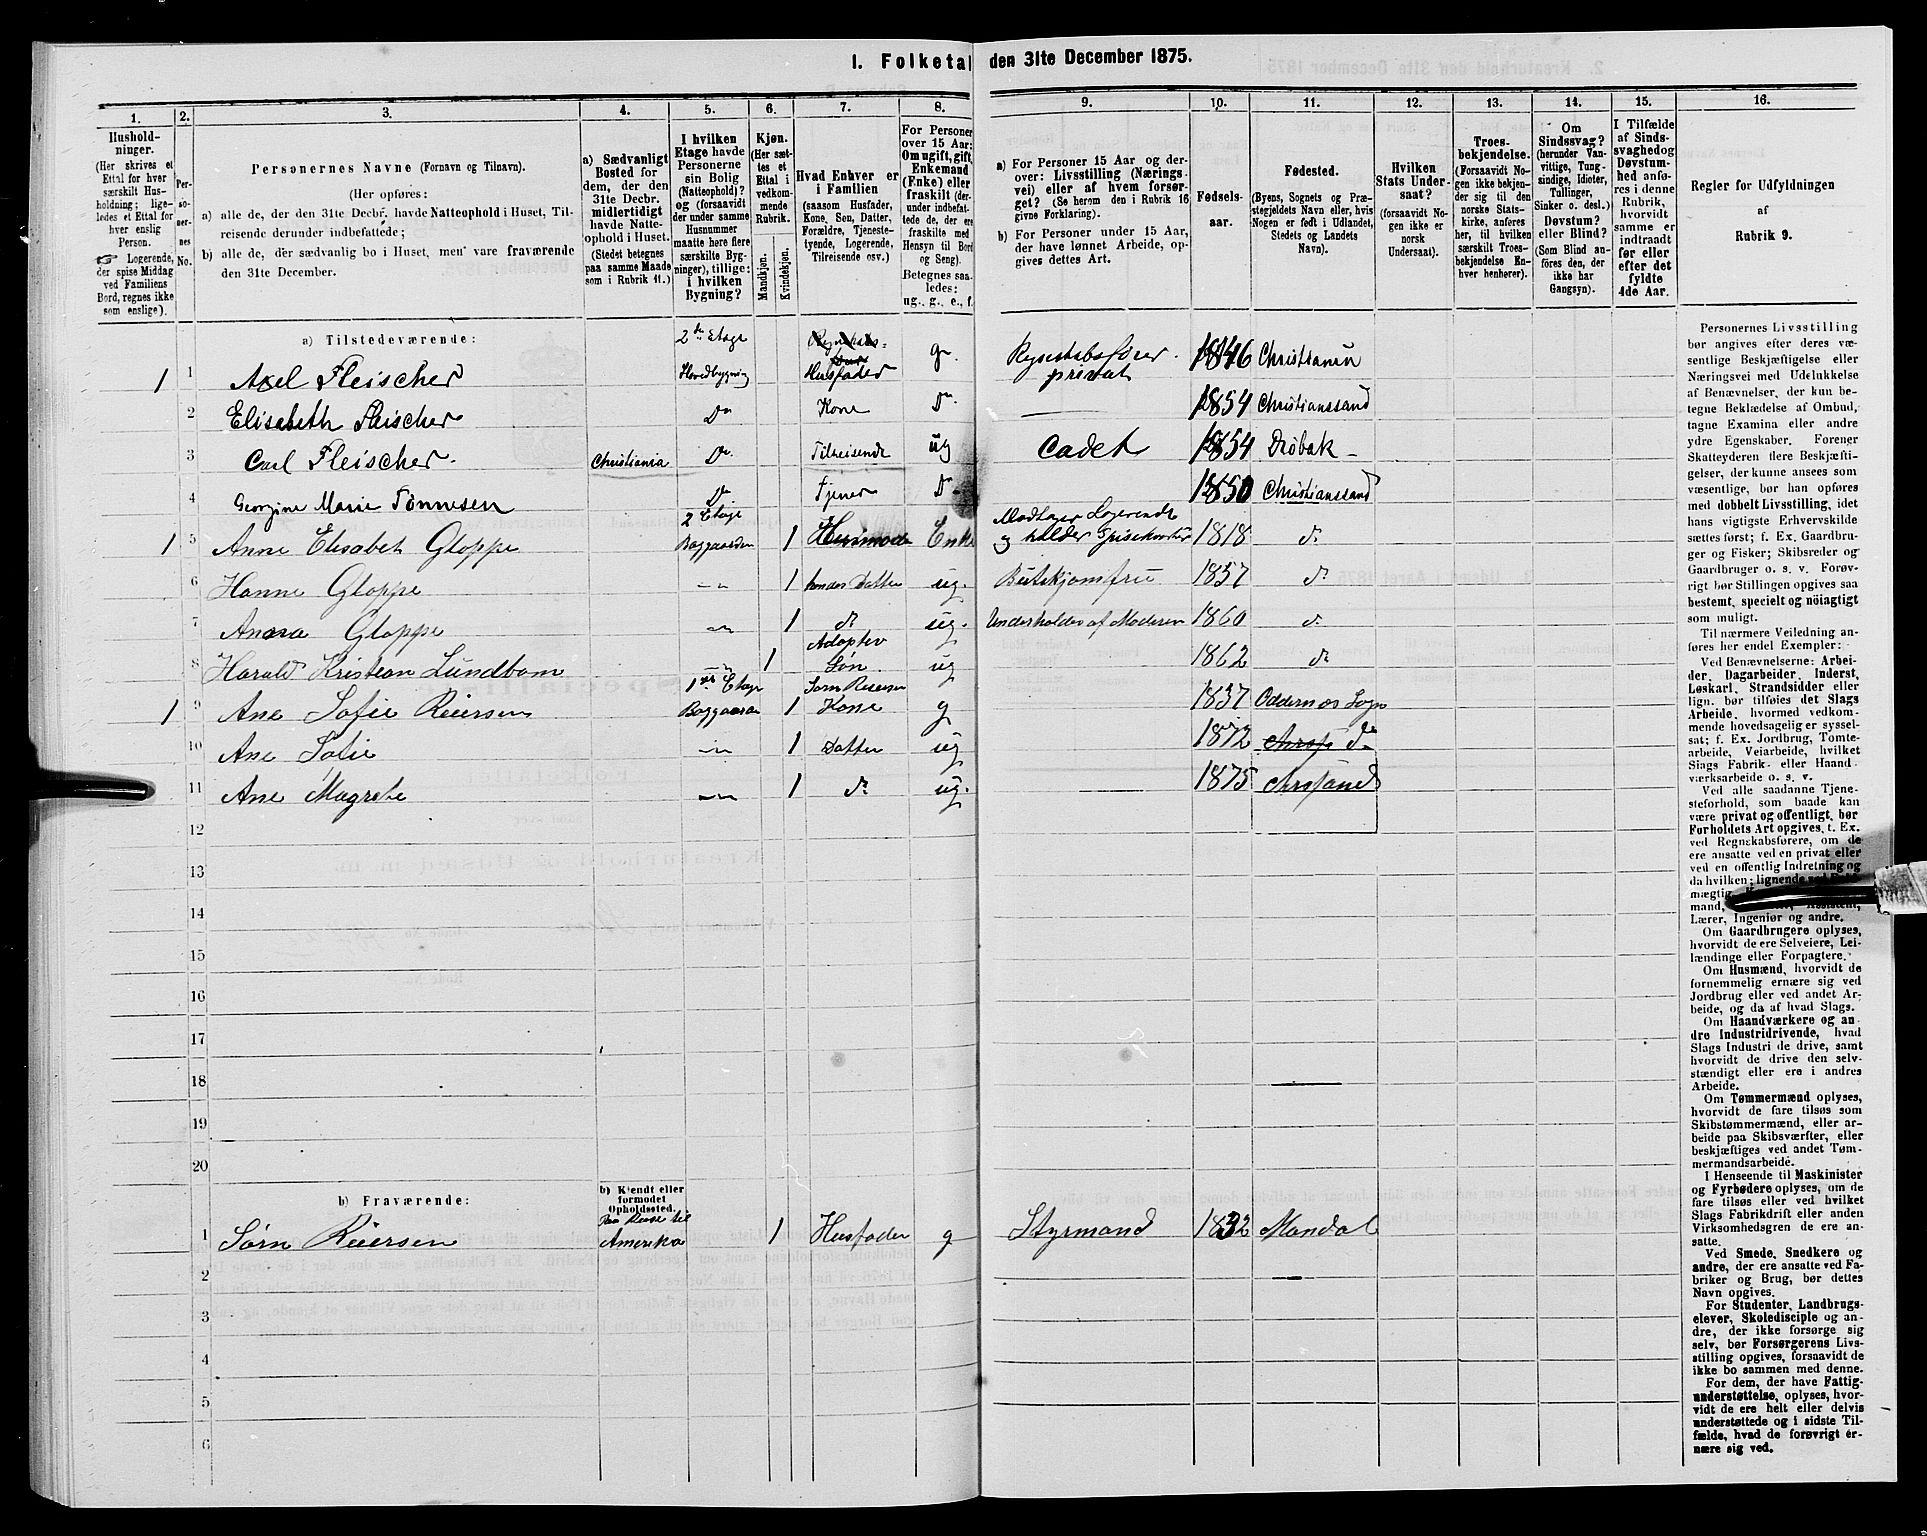 1. Folketal den 31te December 1875.
1. 2. 3. 4. 5. 6. 7. 8. 9. 10. 11. 12. 13. 14. 15. 16.
Hushold-
ninger.
(Her skrives et
Ettal for hver
særskilt Hus-
holdning; lige-
ledes et Ettal for
hver enslig
Person.
☞ Logerende,
der spise Middag
ved Familiens
Bord, regnes ikke
som enslige).
Per-
soner-
nes
No.
Personernes Navne (Fornavn og Tilnavn).
(Her opføres:
a) alle de, der den 31te Decbr. havde Natteophold i Huset, Til-
reisende derunder indbefattede;
b) alle de, der sædvanlig bo i Huset, men vare fraværende
den 31te December.
a) Sædvanligt
Bosted for
dem, der den
31te Decbr.
midlertidigt
havde Natte-
ophold i Huset.
(Stedet betegnes
paa samme Maade
som i Rubrik 11.)
I hvilken
Etage havde
Personerne
sin Bolig
(Natteophold)?
og (forsaavidt
der under samme
Husnummer
maatte høre flere
særskilte Byg-
ninger), tillige:
i hvilken
Bygning?
Kjøn.
(Her sæt-
tes et
Ettal i
vedkom-
mende
Rubrik.
Mandkjøn.
Kvindekjøn.
Hvad Enhver er
i Familien
(saasom Husfader,
Kone, Søn, Datter,
Forældre, Tjeneste-
tyende, Logerende,
Tilreisende osv.)
For Personer
over 15 Aar:
Om ugift, gift,
Enkemand
(Enke) eller
fraskilt (der-
under indbefat-
tede de, der ere
fraskilte med
Hensyn til Bord
og Seng).
Betegnes saa-
ledes:
ug., g., e., f.
a) For Personer 15 Aar og der-
over: Livsstilling (Nærings-
vei) eller af hvem forsør-
get? (Se herom den i Rubrik 16
givne Forklaring).
b) For Personer under 15 Aar,
der have lønnet Arbeide, op-
gives dettes Art.
Fødsels-
aar.
Fødested.
(Byens, Sognets og Præ-
stegjeldets Navn eller, hvis
Nogen er født i Udlandet,
Stedets og Landets
Navn).
Hvilken
Stats Under-
saat?
(forsaavidt No-
gen ikke er
norsk
Undersaat).
Troes-
bekjendelse.
(Forsaavidt No-
gen ikke bekjen-
der sig til den
norske Stats-
kirke, anføres
her, til hvilken
særskilt Troes-
bekjendelse En-
hver henhører).
Om
Sindssvag?
(herunder Van-
vittige, Tung-
sindige, Idioter,
Tullinger,
Sinker o. desl.)
Døvstum?
eller Blind?
(Som Blind an-
føres den, der
ikke har
Gangsyn).
I Tilfælde
af Sinds-
svaghed og
Døvstum-
hed anfø-
res i denne
Rubrik,
hvorvidt
samme er
indtraadt
før eller
efter det
fyldte
4de Aar.
Regler for Udfyldningen
af
Rubrik 9.
a) Tilstedeværende:
1 1 Axel Fleischer 2den Etage Hovedbygning Husfader g. Regnskabsfører privat 1846 Christiania
2 Elisabeth Fleischer Do Kone Do — 1854 Christianssand
3 Carl Fleischer. Christiania Do Tilreisende ug Cadet 1854 Drøbak
4 Georgine Marie Tønnesen Do Tjener Do 1850 Christianssand
1 5 Anne Elisabet Gloppe 2 Etage Baggaarden 1 Husmoder Enke Modtager Logerende og holder Spisekvarter 1818 do
6 Hanne Gloppe — 1 hendes Datter ug. Butikjomfru 1857 do
7 Anna Gloppe — 1 do ug. Underholdes af Moderen 1860 do
8 Harald Kristian Lundbom — 1 Adoptiv Søn. ug 1862 do
1 9 Ane Sofie Reiersen 1ste Etage Baggaarden 1 Sørn Reiersen Kone g 1837 Oddernæs Sogn
10 Ane Sofie — 1 Datter ug 1872 do
11 Ane Magrete — 1 do ug. 1875 Chrsand
12
13
14
15
16
17
18
19
20
b) Fraværende:
b) Kjendt eller
formodet
Opholdssted.
1 Sørn Reiersen Paa Reise til Amerika 1 Husfader g Styrmand 1832 Mandal
2
3
4
5
6
Personernes Livsstilling
bør angives efter deres væ-
sentlige Beskjæftigelse eller
Næringsvei med Udelukkelse
af Benævnelser, der kun be-
tegne Beklædelse af Ombud,
tagne Examina eller andre
ydre Egenskaber. Forener
Skatteyderen flere Beskjæfti-
gelser, der kunne ansees som
væsentlige, bør han opføres
med dobbelt Livsstilling, idet
hans vigtigste Erhvervskilde
sættes først; f. Ex. Gaardbru-
ger og Fisker; Skibsreder og
Gaardbruger o. s. v. Forøv-
rigt bør Stillingen opgives saa
bestemt, specielt og nöiagtigt
som muligt.
Til nærmere Veiledning an-
føres her endel Exempler:
Ved Benævnelserne: Arbei-
der, Dagarbeider, Inderst,
Løskarl, Strandsidder eller
lign. bør tilføies det Slags
Arbeide, hvormed vedkom-
mende hovedsagelig er syssel-
sat; f. Ex. Jordbrug, Tomte-
arbeide, Veiarbeide, hvilket
Slags Fabrik- eller Haand
værksarbeide o. s. v.
Ved alle saadanne Tjene-
steforhold, som baade kan
være privat og offentligt, bør
Forholdets Art opgives, t. Ex.
ved Regnskabsførere, om de
ere ansatte ved en privat eller
ved en offentlig Indretning og
da hvilken; lignende ved
mægtig
mand, Assistent,
Lærer, Ingeniør og andre.
Om Gaardbrugere oplyses,
hvorvidt de ere Selveiere, Lei-
lændinge eller Forpagtere.
Om Husmænd, hvorvidt de
fornemmelig ernære sig ved
Jordbrug eller ved andet Ar-
beide, og da af hvad Slags.
Om Haandværkere og an
dre Industridrivende, hvad
Slags Industri de drive, samt
hvorvidt de drive den selv-
stændigt eller ere i andres
Arbeide.
Om Tømmermænd oplyses,
hvorvidt de fare tilsøs som
Skibstømmermænd, eller ar-
beide paa Skibsværfter, eller
beskjæftiges ved andet Tøm-
mermandsarbeide.
I Henseende til Maskinister
og Fyrbødere oplyses, om de
fare tilsøs eller ved hvilket
Slags Fabrikdrift eller anden
Virksomhedsgren de ere an-
satte.
Ved Smede, Snedkere og
andre, der ere ansatte ved Fa-
briker og Brug, bør dettes
Navn opgives.
For Studenter, Landbrugs-
elever, Skoledisciple og an-
dre, der ikke forsørge sig
selv, bør Forsørgerens Livs-
stilling opgives, forsaavidt de
ikke bo sammen med denne.
For dem, der have Fattig-
understøttelse, oplyses, hvor-
vidt de ere helt eller delvis
understøttede og i sidste Til-
fælde, hvad de forøvrigt er-
nære sig ved.